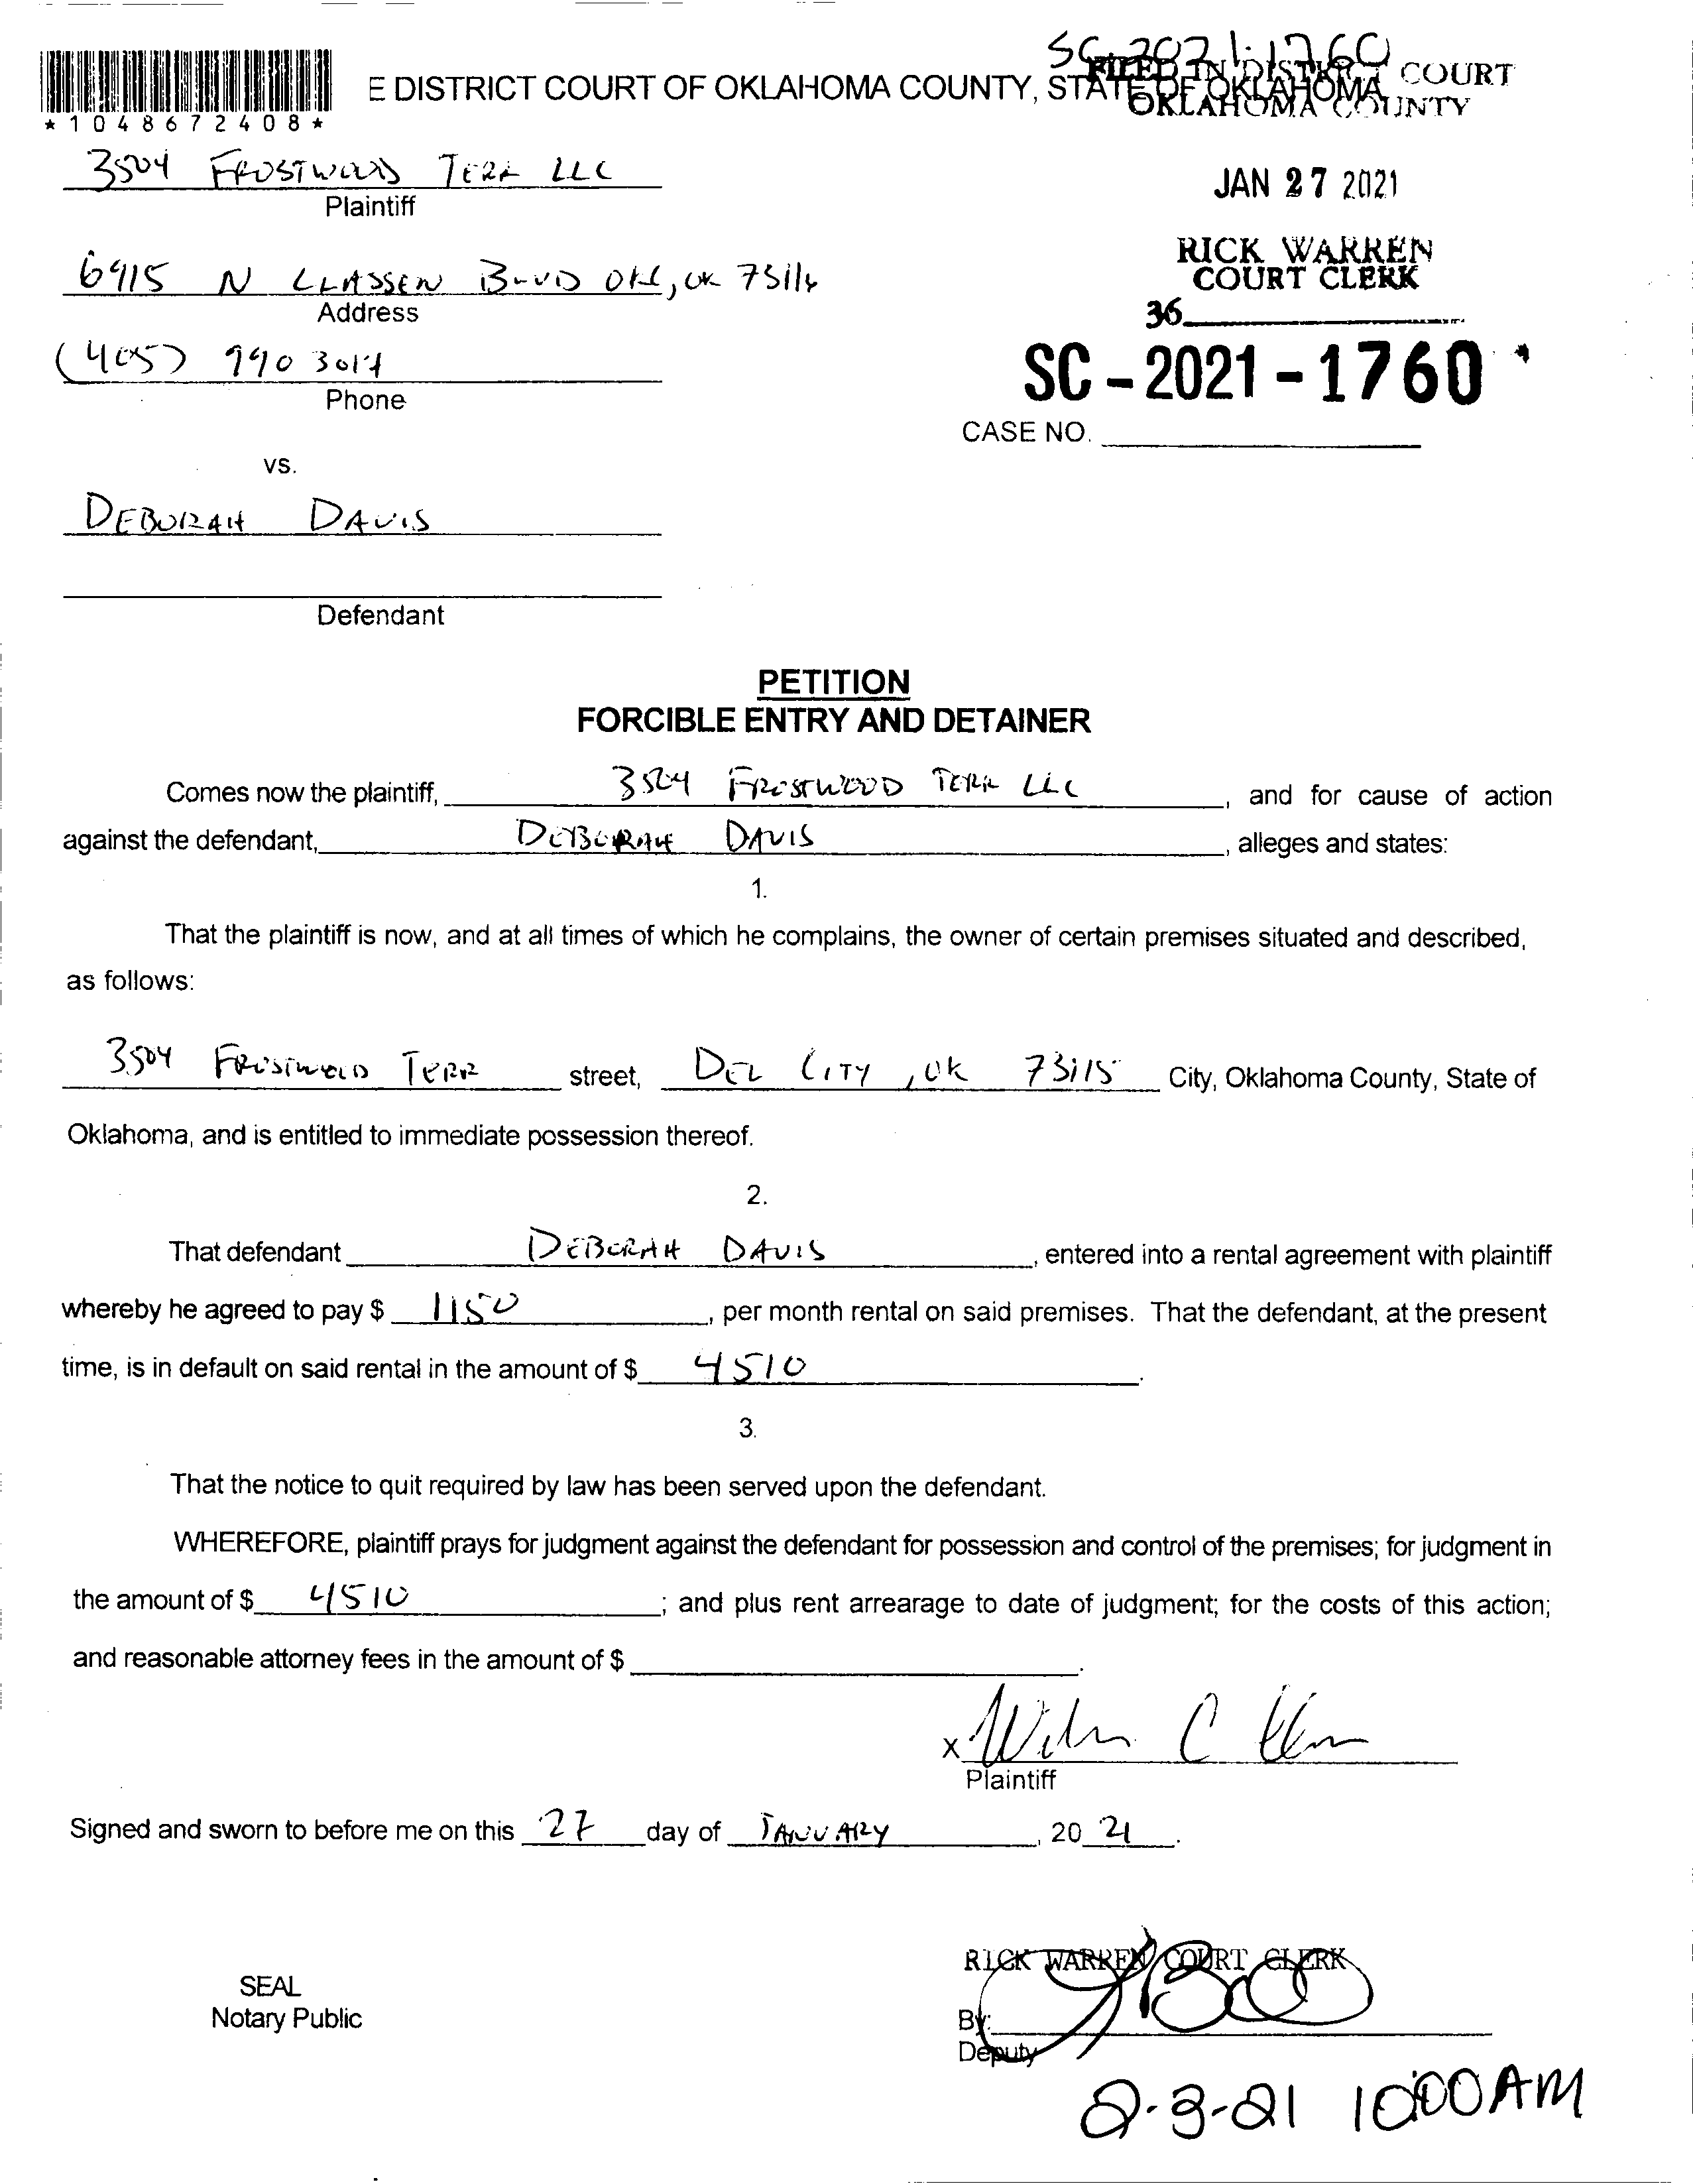 SC-2021-1760
FILED IN DISTRICT COURT
E DISTRICT COURT OF OKLAHOMA COUNTY, STATE OF OKLAHOMA
OKLAHOMA COUNTY
*1048672408*
3504 FROSTWOOD TERR LLC
Plaintiff
JAN 27 2021
RICK WARREN
COURT CLERK
36
6915 N CLASSEN BLVD OKC, OK 73116
Address
(405) 990 3017
Phone
SC-2021-1760
CASE NO.
vs.
DEBORAH DAVIS
Defendant
PETITION
FORCIBLE ENTRY AND DETAINER
Comes now the plaintiff, 3504 FROSTWOOD TERR LLC, and for cause of action
against the defendant, DEBORAH DAVIS, alleges and states:
1.
That the plaintiff is now, and at all times of which he complains, the owner of certain premises situated and described,
as follows:
3504 FROSTWOOD TERR street, DEL CITY, OK 73115 City, Oklahoma County, State of
Oklahoma, and is entitled to immediate possession thereof.
2.
That defendant DEBORAH DAVIS, entered into a rental agreement with plaintiff
whereby he agreed to pay $ 1150, per month rental on said premises. That the defendant, at the present
time, is in default on said rental in the amount of $ 4510.
3.
That the notice to quit required by law has been served upon the defendant.
WHEREFORE, plaintiff prays for judgment against the defendant for possession and control of the premises; for judgment in
the amount of $ 4510; and plus rent arrearage to date of judgment; for the costs of this action;
and reasonable attorney fees in the amount of $
X
Plaintiff
Signed and sworn to before me on this 27 day of JANUARY, 20 21.
RICK WARREN COURT CLERK
SEAL
Notary Public
By:
Deputy
2-3-21 10:00 AM